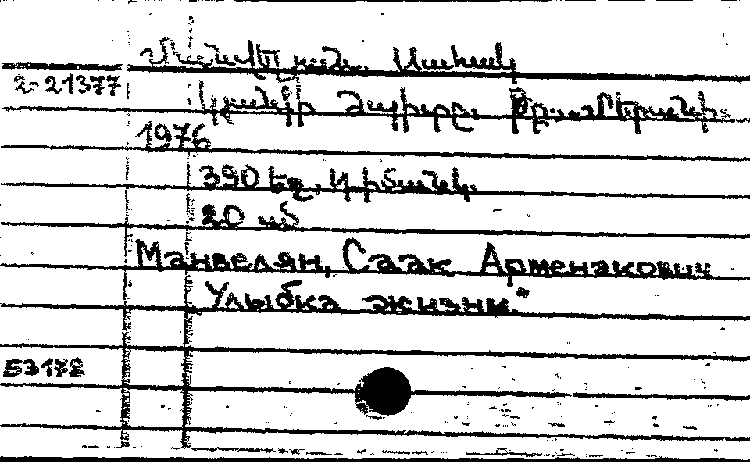 Մանվելյան, Սահակ
2-21377
Կյանքի ժպիտը. Եր.,
1976
390 էջ, նկ.
20 սմ
Манвелян, Саак Арменакович
Улыбка жизни."
53172